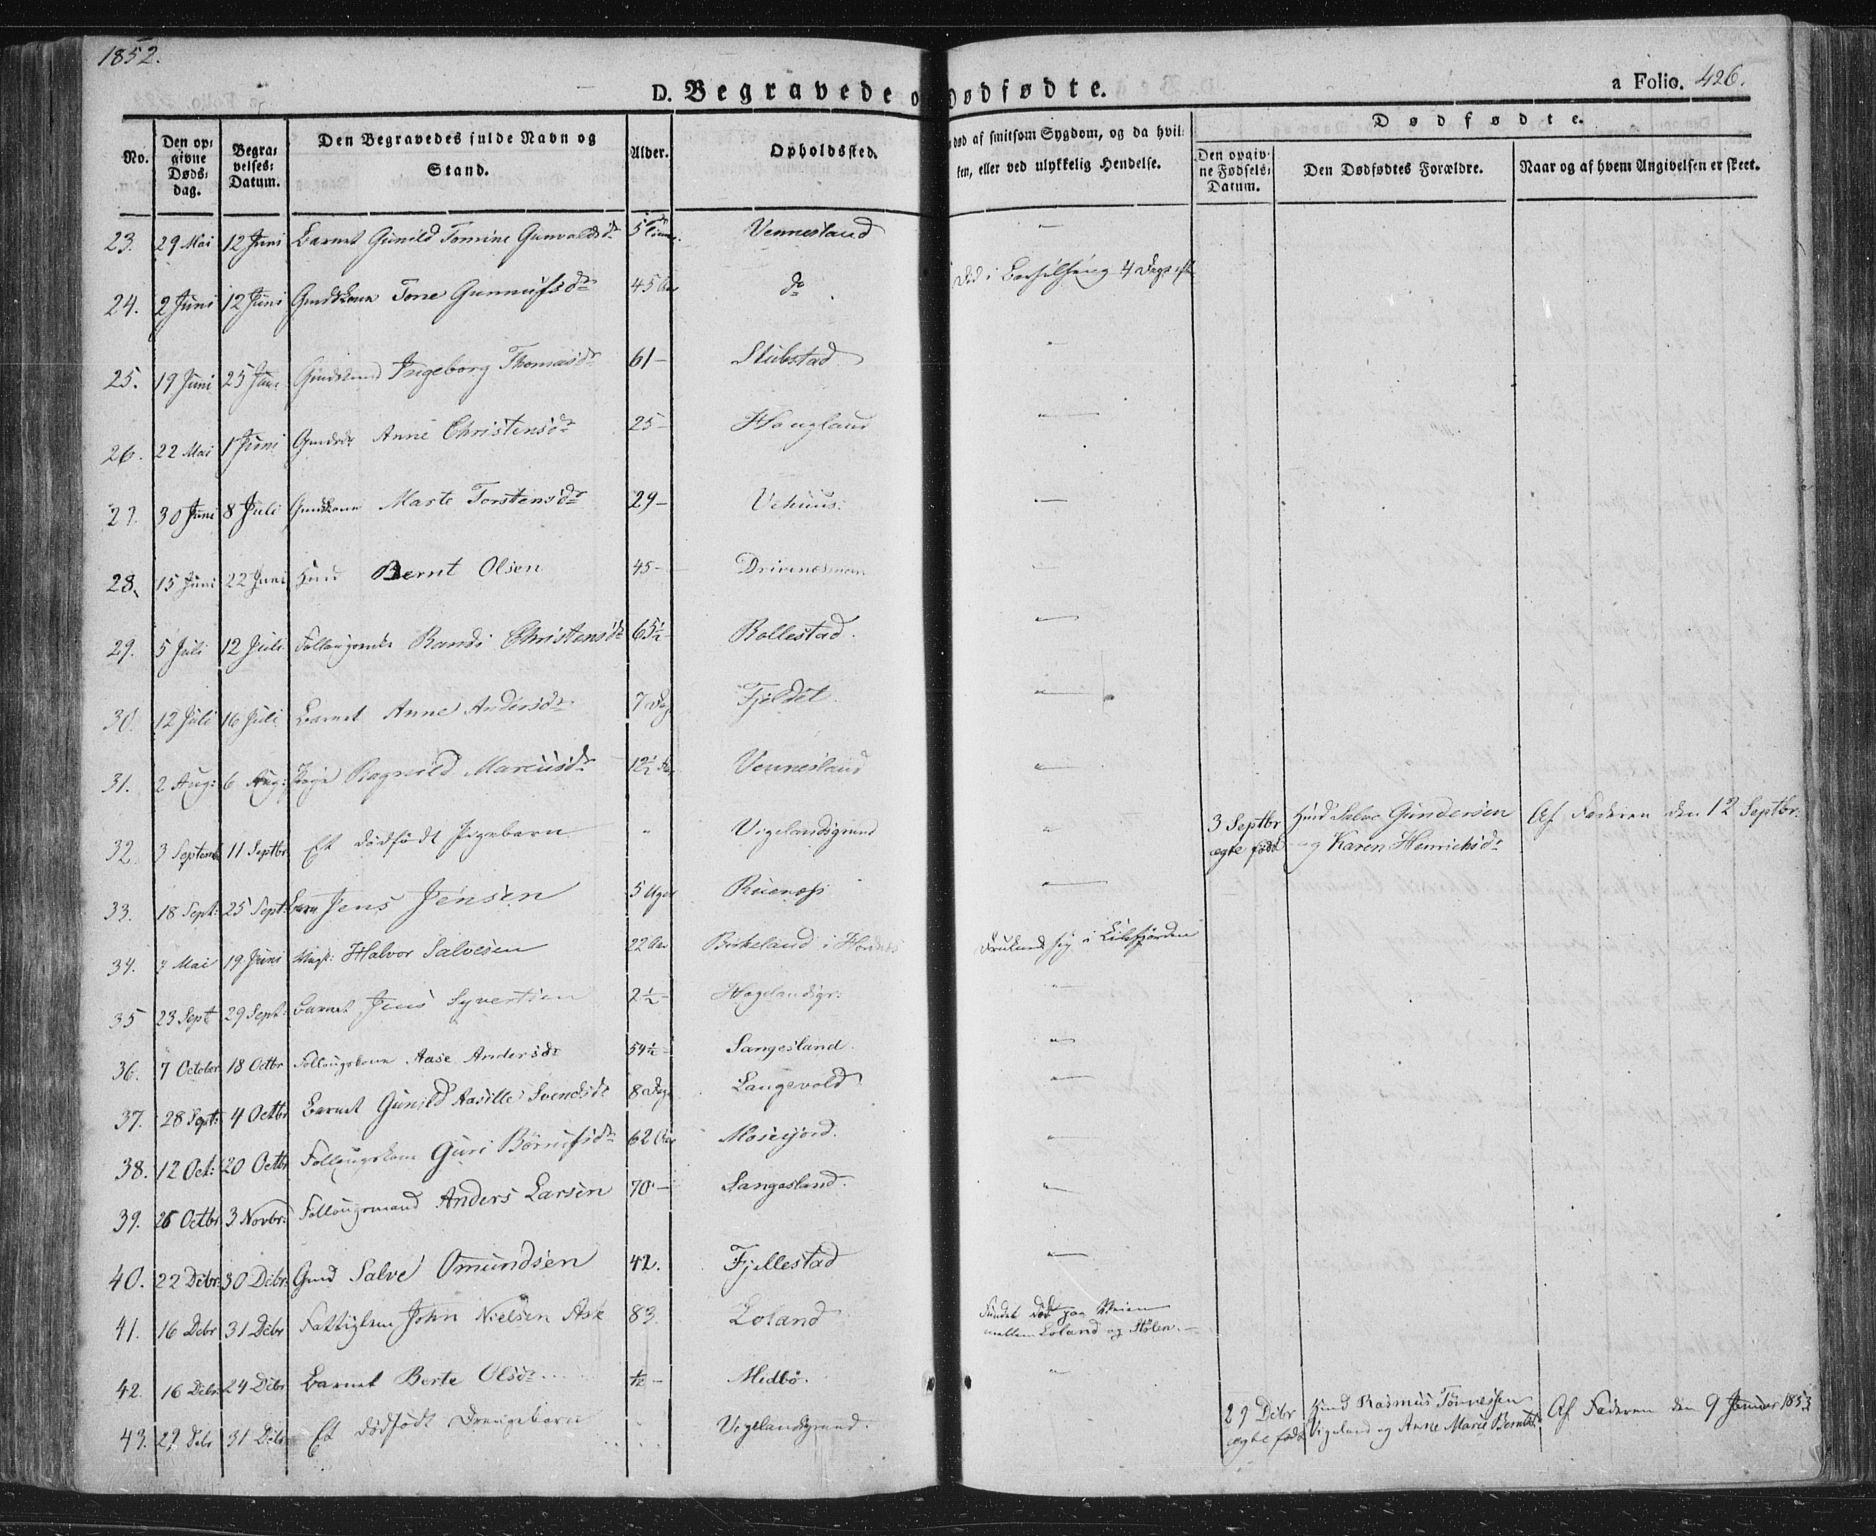 1852.
D. Begravede o
Dødfødte.
a Folio. 426.
No.
Den op-
givne
Døds-
dag.
Begra-
velses-
Datum.
Den Begravedes fulde Navn og
Stand.
Alder.
Opholdssted.
død af smitsom Sygdom, og da hvil-
ken, eller ved ulykkelig Hendelse.
Dødfødte.
Den opgiv-
ne Fødsels-
Datum.
Den Dødfødtes Forældre.
Naar og af hvem Angivelsen er skeet.
23. 29 Mai 12 Juni Barnet Gunild Tomine Gunvaldsdr Vennesland
24. 2 Juni 12 Juni Tone Gunnufsdr 45 Aar do Død i Barselseng 4 Dage
25. 19 Juni 25 Juni Ingeborg Thomasdr 61 - Stubstad
26. 22 Mai 1 Juni Anne Christensdr 25 - Haugland
27. 30 Juni 8 Juli Marte Torstensdr 29 - Vehuus
28. 15 Juni 22 Juni Huusmd Bernt Olsen 45 - Drivenesmoen
29. 5 Juli 12 Juli Randi Christensdr 65½ Bollestad
30. 12 Juli 16 Juli Barnet Anne Andersdr 7 Dage Fjeldet
31. 2 Aug: 6 Aug: Pige Ragnild Marcusdr 12½ Aar Vennesland
32. 3 Septemb 11 Septbr Et dødfødt Pigebarn " Vigelandsgrund " 3 Septbr Husmd Salve Gundersen Af Faderen den 12 Septbr.
ægte født og Karen Henrichsdr
33. 18 Sept: 25 Sept: Barn Jens Jensen 5 Uger Ruenæs
34. 7 Mai 19 Juni Halvor Salvesen 22 Aar Birkeland i Druknede sig i
35 23 Sept 29 Sept: Barnet Jens Syvertsen 2½ - Hagelandsgr:
36. 7 October 18 Octbr Follaugskone Aase Andersdr 54½ - Sangesland.
37. 28 Sept: 4 Octbr Barnet Gunild Aasille Svendsdr 8 Dage Langevold
38. 12 Oct: 20 Octbr Follaugskone Guri 62 Aar Mosesjord.
39. 26 Octbr 3 Novbr: Follaugsmand Anders Larsen 70 - Sangesland.
40. 22 Debr. 30 Debr. Gmd Salve Omundsen 42. Fjellestad
41. 16 Debr 31 Debr Fattiglem John Nielsen Ask 83. Loland Fundet død paa Veien
mellem Loland og Stølen. -
42. 16 Debr 24 Debr Barnet Berte Olsdr ½ - Midbø.
43. 29 Debr 31 Debr Et dødfødt Drengebarn Vigelandsgrund. 29 Debr Husmd Rasmus Tønnessen Af Faderen den 9 Januar 1853
ægte født Vigeland og Anne Marie Berntsd